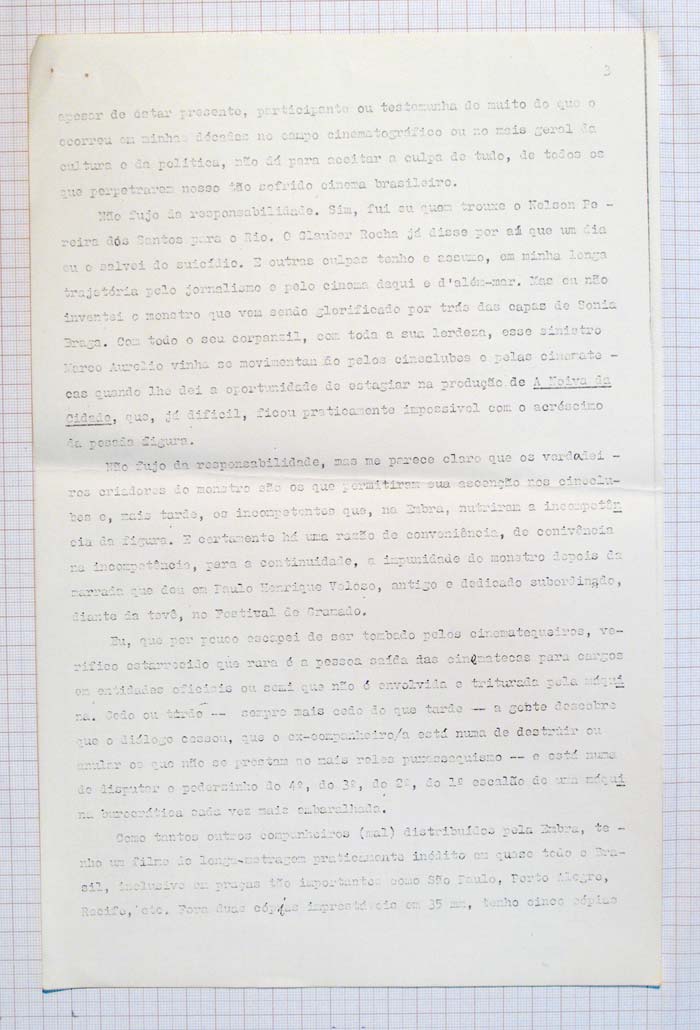 3
apesar de estar presente, participante ou testemunha de muito do que o
ocorreu em minhas décadas no campo cinematográfico ou no mais geral da
cultura e da política, não dá para aceitar a culpa de tudo, de todos os
que perpetraram nosso tão sofrido cinema brasileiro.
Não fujo da responsabilidade. Sim, fui eu quem trouxe o Nelson Pe-
reira dos Santos para o Rio. O Glauber Rocha já disse por aí que um dia
eu o salvei do suicídio. E outras culpas tenho e assumo, em minha longa
trajetória pelo jornalismo e pelo cinema daqui e d'além-mar. Mas eu não
inventei o monstro que vem sendo glorificado por trás das capas de Sonia
Braga. Com todo o seu corpanzil, com toda a sua lerdeza, esse sinistro
Marco Aurelio vinha se movimentando pelos cineclubes e pelas cinemate-
cas quando lhe dei a oportunidade de estagiar na produção de A Noiva da
Cidade, que, já difícil, ficou praticamente impossível com o acréscimo
da pessoa figura.
Não fujo da responsabilidade, mas me parece claro que os verdadei-
ros criadores do monstro são os que permitiram sua ascenção nos cineclu-
bes e, mais tarde, os incompetentes que, na Embra, nutriram a incompetên
cia da figura. E certamente há uma razão de conveniência, de conivência
na incompetência, para a continuidade, a impunidade do monstro depois da
marrada que deu em Paulo Henrique Veloso, antigo e dedicado subordinado,
diante da tevê, no Festival de Gramado.
Eu, que por pouco escapei de ser tombado pelos cinematequeiros, ve-
rifico estarrecido que rara é a pessoa saída das cinematecas para cargos
em entidades oficiais ou semi que não é envolvida e triturada pela máqui
na. Cedo ou tarde -- sempre mais cedo do que tarde -- a gente descobre
que o diálogo cessou, que o ex-companheiro/a está numa de destruir ou
anular os que não se prestam ao mais reles puxassaquismo -- e está numa
de disputar o poderzinho do 4º, do 3º, do 2º, do 1º escalão de uma máqui
na burocrática cada vez mais embaralhada.
Como tantos outros companheiros (mal) distribuídos pela Embra, te-
nho um filme de longa-metragem praticamente inédito em quase todo o Bra-
sil, inclusive em praças tão importantes como São Paulo, Porto Alegre,
Recife, etc. Fora duas cópias imprestáveis em 35 mm, tenho cinco cópias